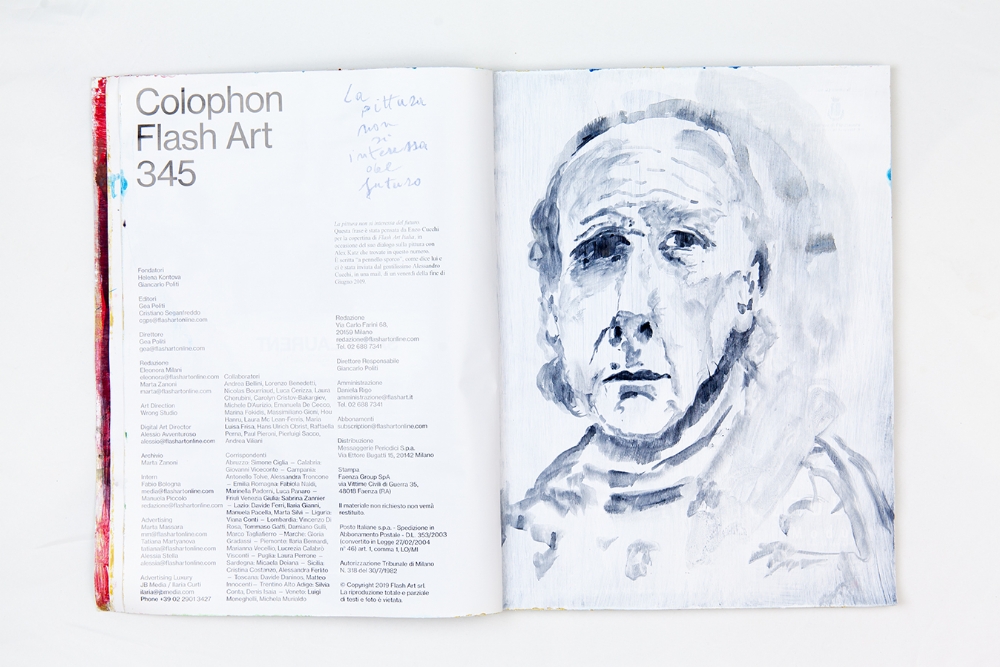 Colophon
Flash Art
345
La
pittura
non
si
interessa
del
futuro
La pittura non si interessa del futuro.
Questa frase è stata pensata da Enzo Cucchi
per la copertina di Flash Art Italia, in
occasione del suo dialogo sulla pittura con
Alex Katz che trovate in questo numero.
Ciugno 2019.
Fondatori
Helena Kontova
Giancarlo Politi
Editori
Gea Politi
Cristiano Seganfreddo
cgps@flashartonline.com
Direttore
Gea Politi
gea@flashartonline.com
Redazione
Eleonora Milani
eleonora@flashartonline.com
Marta Zanoni
marta@flashartonline.com
Art Direction
Wrong Studio
Digital Art Director
Alessio Avventuroso
alessio@flashartonline.com
Archivio
Marta Zanoni
Intern
Fabia Bologna
media@flashartonline.com
Manuela Piccolo
redazione@flashartonline.com
Advertising
Marta Massara
mm@flashartonline.com
Tatiana Martyanova
tatiana@flashartonline.com
Alessia Stella
alessia@flashartonline.com
Advertising Luxury
JB Media / Ilaria Curti
ilaria@jbmedia.com
Phone +39 02 2901 3427
Collaboratori
Andrea Bellini, Lorenzo Benedetti,
Nicolas Bourriaud, Luca Cerizza, Laura
Cherubini, Carolyn Christov-Bakargiev,
Michele D'Aurizio, Emanuela De Cecco,
Marina Fokidis, Massimiliano Gioni, Hou
Hanru, Laura Mc Lean-Ferris, Mario
Luisa Frisa, Hans Ulrich Obrist, Raffaella
Perna, Paul Pieroni, Pierluigi Sacco,
Andrea Viliani.
Corrispondenti
Abruzzo: Simone Ciglia — Calabria:
Giovanni Viceconte — Campania:
Antonello Tolve, Alessandra Troncone
— Emilia Romagna: Fabiola Naldi,
Marinella Paderni, Luca Panaro —
Friuli Venezia Giulia: Sabrina Zannier
— Lazio: Davide Ferri, Ilaria Gianni,
Manuela Pacella, Marta Silvi — Liguria:
Viana Conti — Lombardia: Vincenzo Di
Rosa, Tommaso Gatti, Damiano Gullì,
Marco Tagliafierro — Marche: Gloria
Gradassi — Piemonte: Ilaria Bernardi,
Marianna Vecellio, Lucrezia Calabrò
Visconti — Puglia: Laura Perrone —
Sardegna: Micaela Deiana — Sicilia:
Cristina Costanzo, Alessandra Ferlito
— Toscana: Davide Daninos, Matteo
Innocenti — Trentino Alto Adige: Silvia
Conta, Denis Isaia — Veneto: Luigi
Meneghelli, Michela Morsiello
Redazione
Via Carlo Farini 68,
20159 Milano
redazione@flashartonline.com
Tel. 02 688 7341
Direttore Responsabile
Giancarlo Politi
Amministrazione
Daniela Riga
amministrazione@flashart.it
Tel. 02 688 7341
Abbonamenti
subscription@flashartonline.com
Distribuzione
Messaggerie Periodici S.p.a.
Via Ettore Bugatti 15, 20142 Milano
Stampa
Faenza Group SpA
via Vittime Civili di Guerra 35,
48018 Faenza (RA)
Il materiale non richiesto non verrà
restituito
Poste Italiane s.p.a. - Spedizione in
Abbonamento Postale - D.L. 353/2003
(convertito in Legge 27/02/2004
n° 46) art. 1, comma 1, LO/MI
Autorizzazione Tribunale di Milano
N. 318 del 30/7/1982
© Copyright 2019 Flash Art srl.
La riproduzione totale e parziale
di testi e foto è vietata.